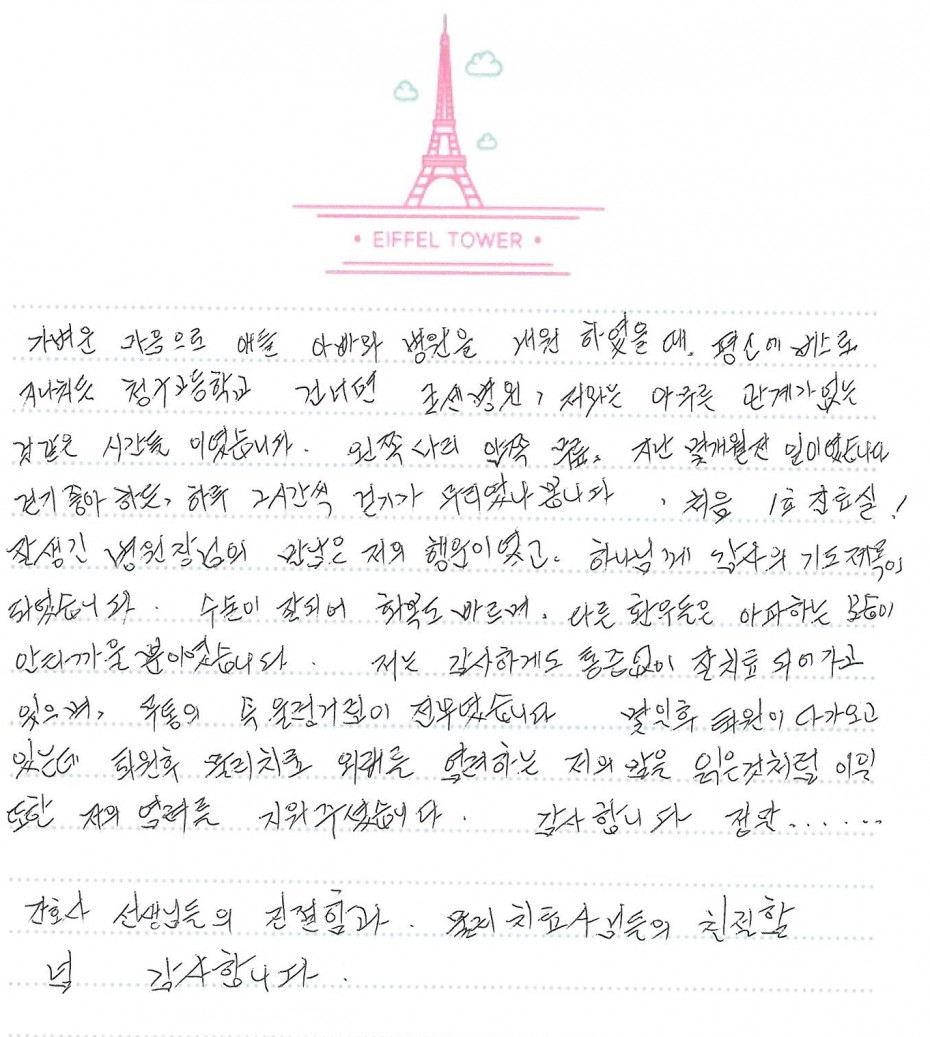 • EIFFEL TOWER •
가벼운 마음으로 애들 아빠와 병원을 내원 하였을 때. 평소에 버스로
지나쳐듯 청구고등학교 건너편 병원, 저와는 아무른 관계가 없는
것같은 시간들 이었습니다. 왼쪽 다리 앞쪽 무릎. 지난 몇개월전 일이었습니다
걷기 좋아 하는, 하루 2시간씩 걷기가 무리였나 봅니다, 처음 1호 진료실!
잘생긴 병원장님의 만남은 저의 행운이였고. 하나님께 감사의 기도제목이
되었습니다. 수술이 잘되어 회복도 빠르며. 다른 환우들은 아파하는 모습이
안타까울 뿐이였습니다. 저는 감사하게도 통증없이 잘치료 되어가고
있으며, 무통의 독 울렁거림이 전무였습니다 몇일후 퇴원이 다가오고
있는데 퇴원후 물리치료 외래를 염려하는 저의 맘을 읽은것처럼 이일
또한 저의 염려를 지워주셨습니다. 감사합니다 정말......
간호사 선생님들의 친절함과. 물리치료사님들의 친절함
넘 감사합니다.